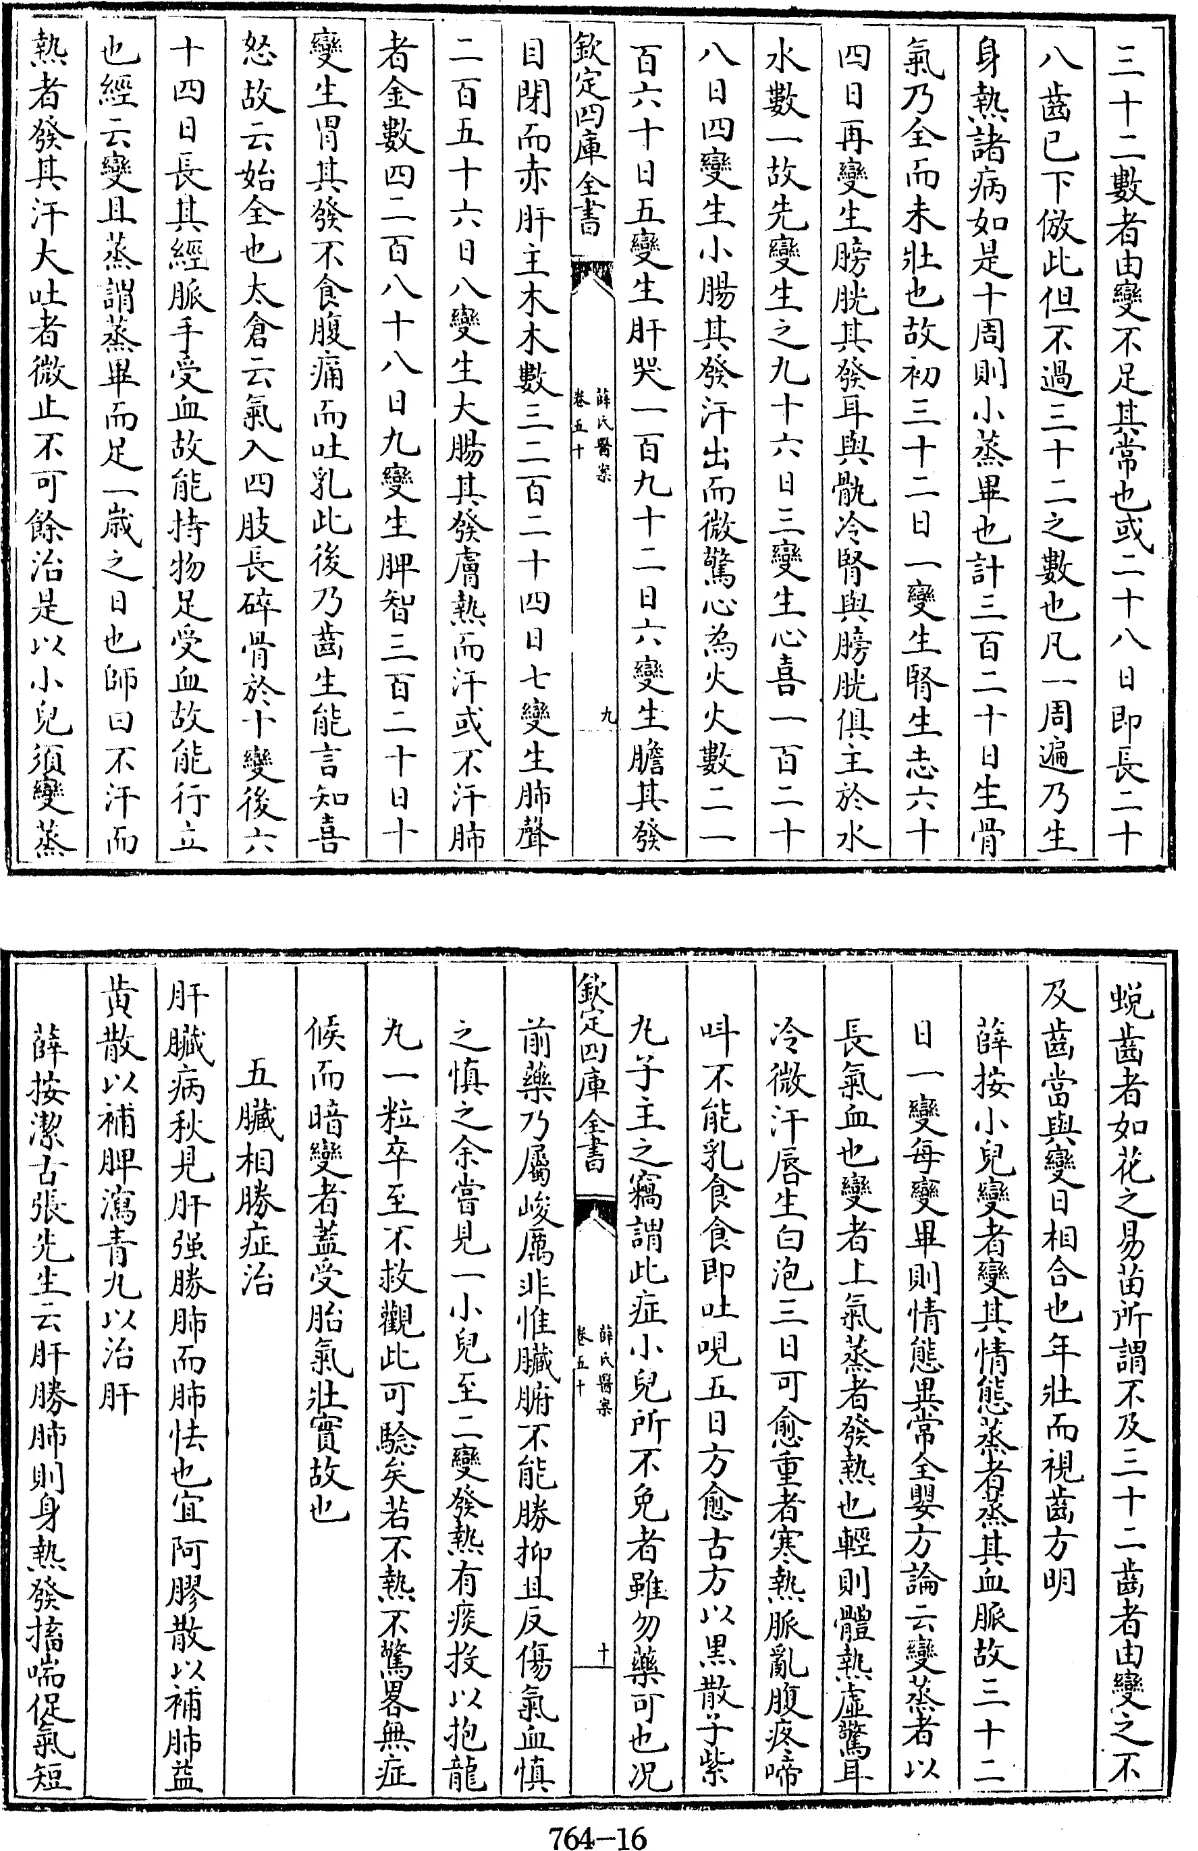 三十二數者由變不足其常也或二十八日即長二十
八齒已下倣此但不過三十二之數也凡一周遍乃生
身熱諸病如是十周則小蒸畢也計三百二十日生骨
氣乃全而未壯也故初三十二日一變生腎生志六十
四日再變生膀胱其發耳與骩冷腎與膀胱俱主於水
水數一故先變生之九十六日三變生心喜一百二十
八日四變生小腸其發汗出而微驚心為火火數二一
百六十日五變生肝哭一百九十二日六變生膽其發
欽定四庫全書
薛氏醫案
卷五十
九
目閉而赤肝主木木數三二百二十四日七變生肺聲
二百五十六日八變生大腸其發膚熱而汗或不汗肺
者金數四二百八十八日九變生脾智三百二十日十
變生胃其發不食腹痛而吐乳此後乃齒生能言知喜
怒故云始全也太倉云氣入四肢長碎骨於十變後六
十四日長其經脈手受血故能持物足受血故能行立
也經云變且蒸謂蒸畢而足一歲之日也師曰不汗而
熱者發其汗大吐者微止不可餘治是以小兒須變蒸
蛻齒者如花之易苗所謂不及三十二齒者由變之不
及齒當與變日相合也年壯而視齒方明
薛按小兒變者變其情態蒸者蒸其血脈故三十二
日一變每變畢則情態異常全嬰方論云變蒸者以
長氣血也變者上氣蒸者發熱也輕則體熱虛驚耳
冷微汗唇生白泡三日可愈重者寒熱脈亂腹疼啼
呌不能乳食食即吐哯五日方愈古方以黑散子紫
九子主之竊謂此症小兒所不免者雖勿藥可也况
欽定四庫全書
薛氏醫案
卷五十
十
前藥乃屬峻厲非惟臟腑不能勝抑且反傷氣血慎
之慎之余嘗見一小兒至二變發熱有痰投以抱龍
九一粒卒至不救觀此可驗矣若不熱不驚畧無症
候而暗變者葢受胎氣壯實故也
五臟相勝症治
肝臟病秋見肝强勝肺而肺怯也宜阿膠散以補肺益
黄散以補脾瀉青九以治肝
薛按潔古張先生云肝勝肺則身熱發搐喘促氣短
764-16